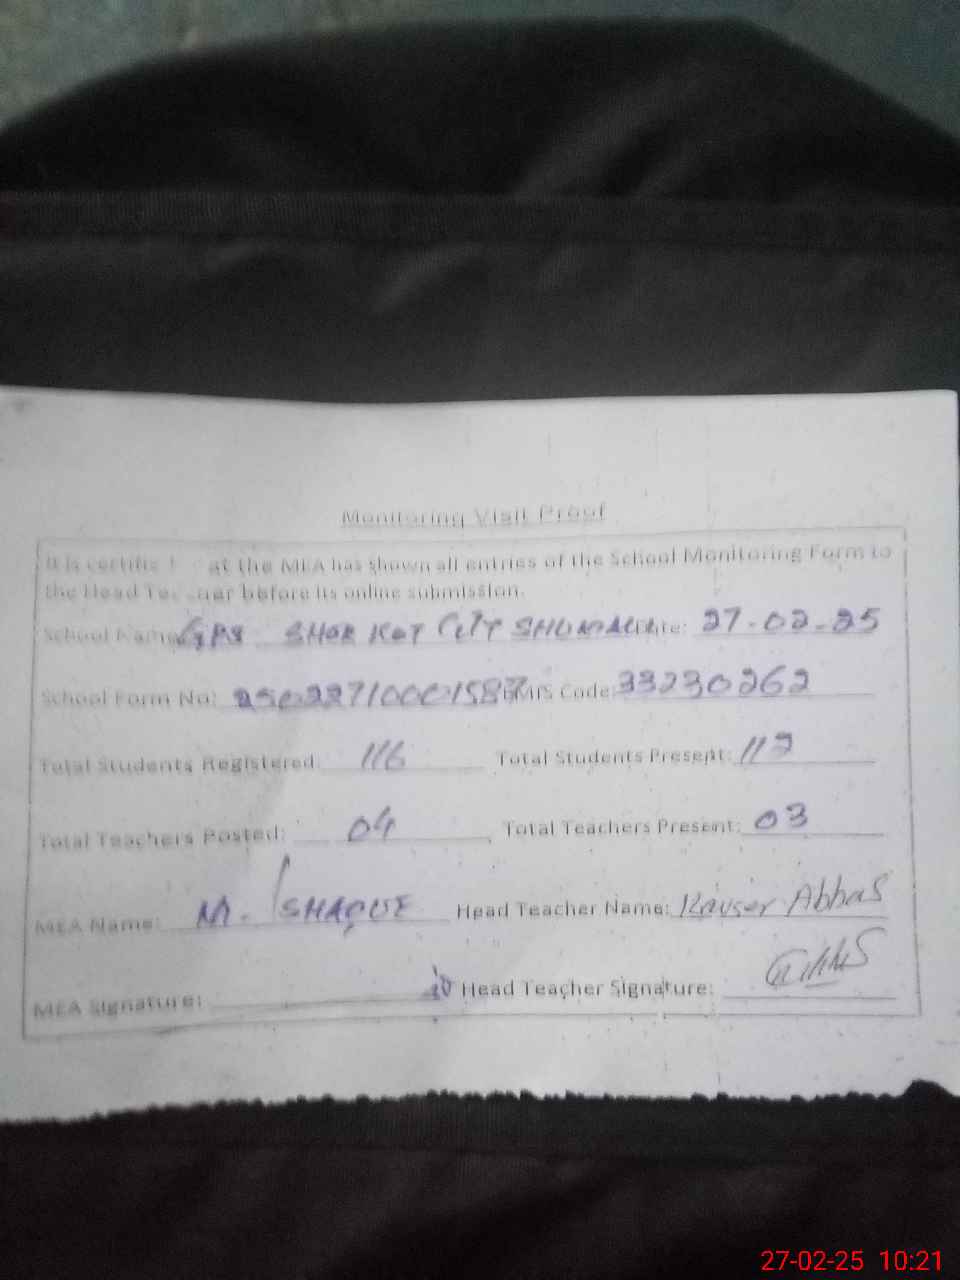 Monitoring Visit Proof
It is certified at the MEA has shown all entries of the School Monitoring Form to
the Head Teacher before its online submission.
School Name: GPS SHOR KOT CITY SHUMALI Date: 27-02-25
School Form No: 25022710001587 EMIS Code: 33230262
Total Students Registered: 116 Total Students Present: 112
Total Teachers Posted: 04, Total Teachers Present: 03
MEA Name: M. ISHAQUE Head Teacher Name: Kausar Abbas
MEA Signature: Head Teacher Signature:
27-02-25 10:21